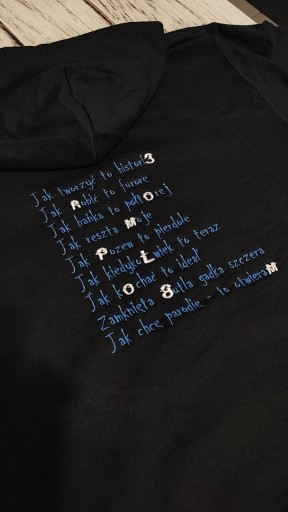 Jak tworzyć to histor3
Jak Robić to furore
Jak bańka to półtOrej
Jak reszta Moje
Jak Pozew to pierdole
Jak kiedykoLwiek to teraz
Jak kOchać to ideał
Zamknięta 8utla gadka szczera
Jak chcę parodie - to otwieraM